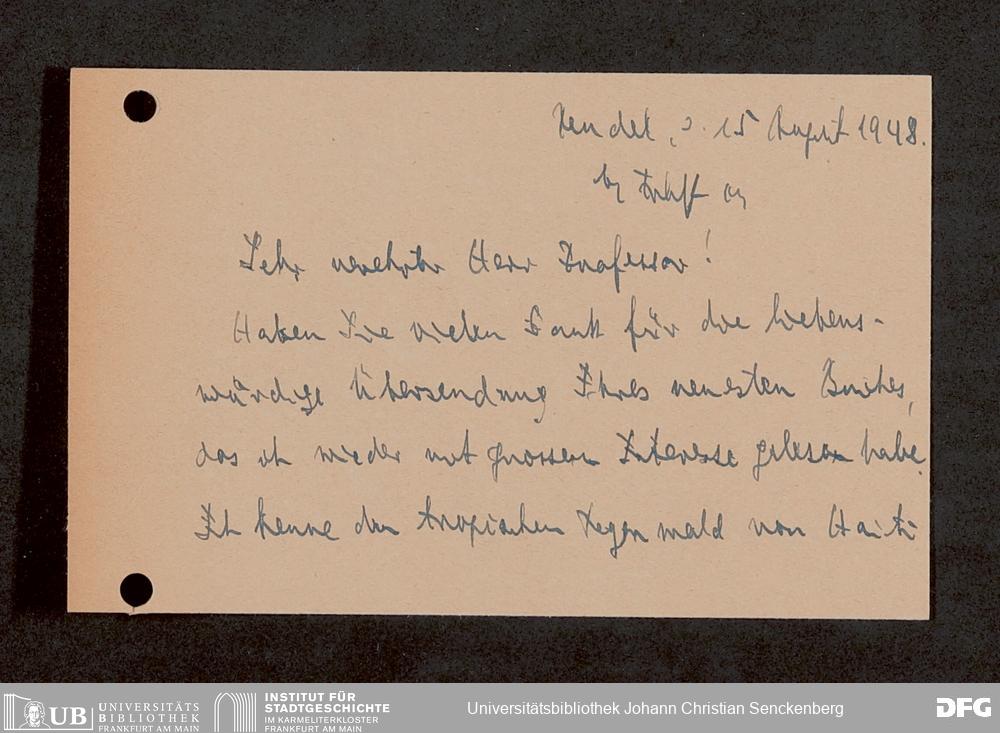 Rendel, d. 15 August 1948.
bz Frkft a/M
Sehr verehrter Herr Professor!
Haben Sie vielen Dank für die liebens-
würdige Übersendung Ihres neuesten Buches,
das ich wieder mit grossem Interesse gelesen habe.
Ich kenne den tropischen Regenwald von Haiti
UB UNIVERSITÄTS
BIBLIOTHEK
FRANKFURT AM MAIN
INSTITUT FÜR
STADTGESCHICHTE
IM KARMELITERKLOSTER
FRANKFURT AM MAIN
Universitätsbibliothek Johann Christian Senckenberg
DFG